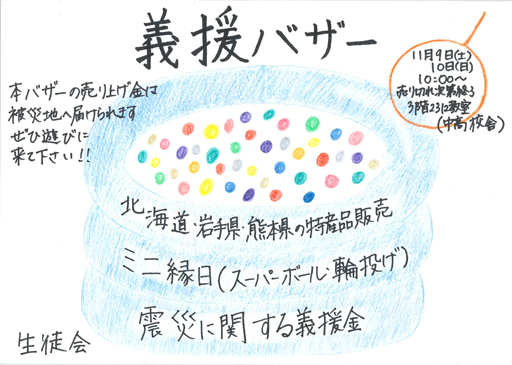 義援バザー
11月9日(土)
10日(日)
10:00〜
売り切れ次第終了
3階231教室
(中高校舎)
本バザーの売り上げ金は
被災地へ届けられます
ぜひ遊びに
来て下さい!!
北海道・岩手県・熊本県の特産品販売
ミニ縁日(スーパーボール・輪投げ)
震災に関する義援金
生徒会